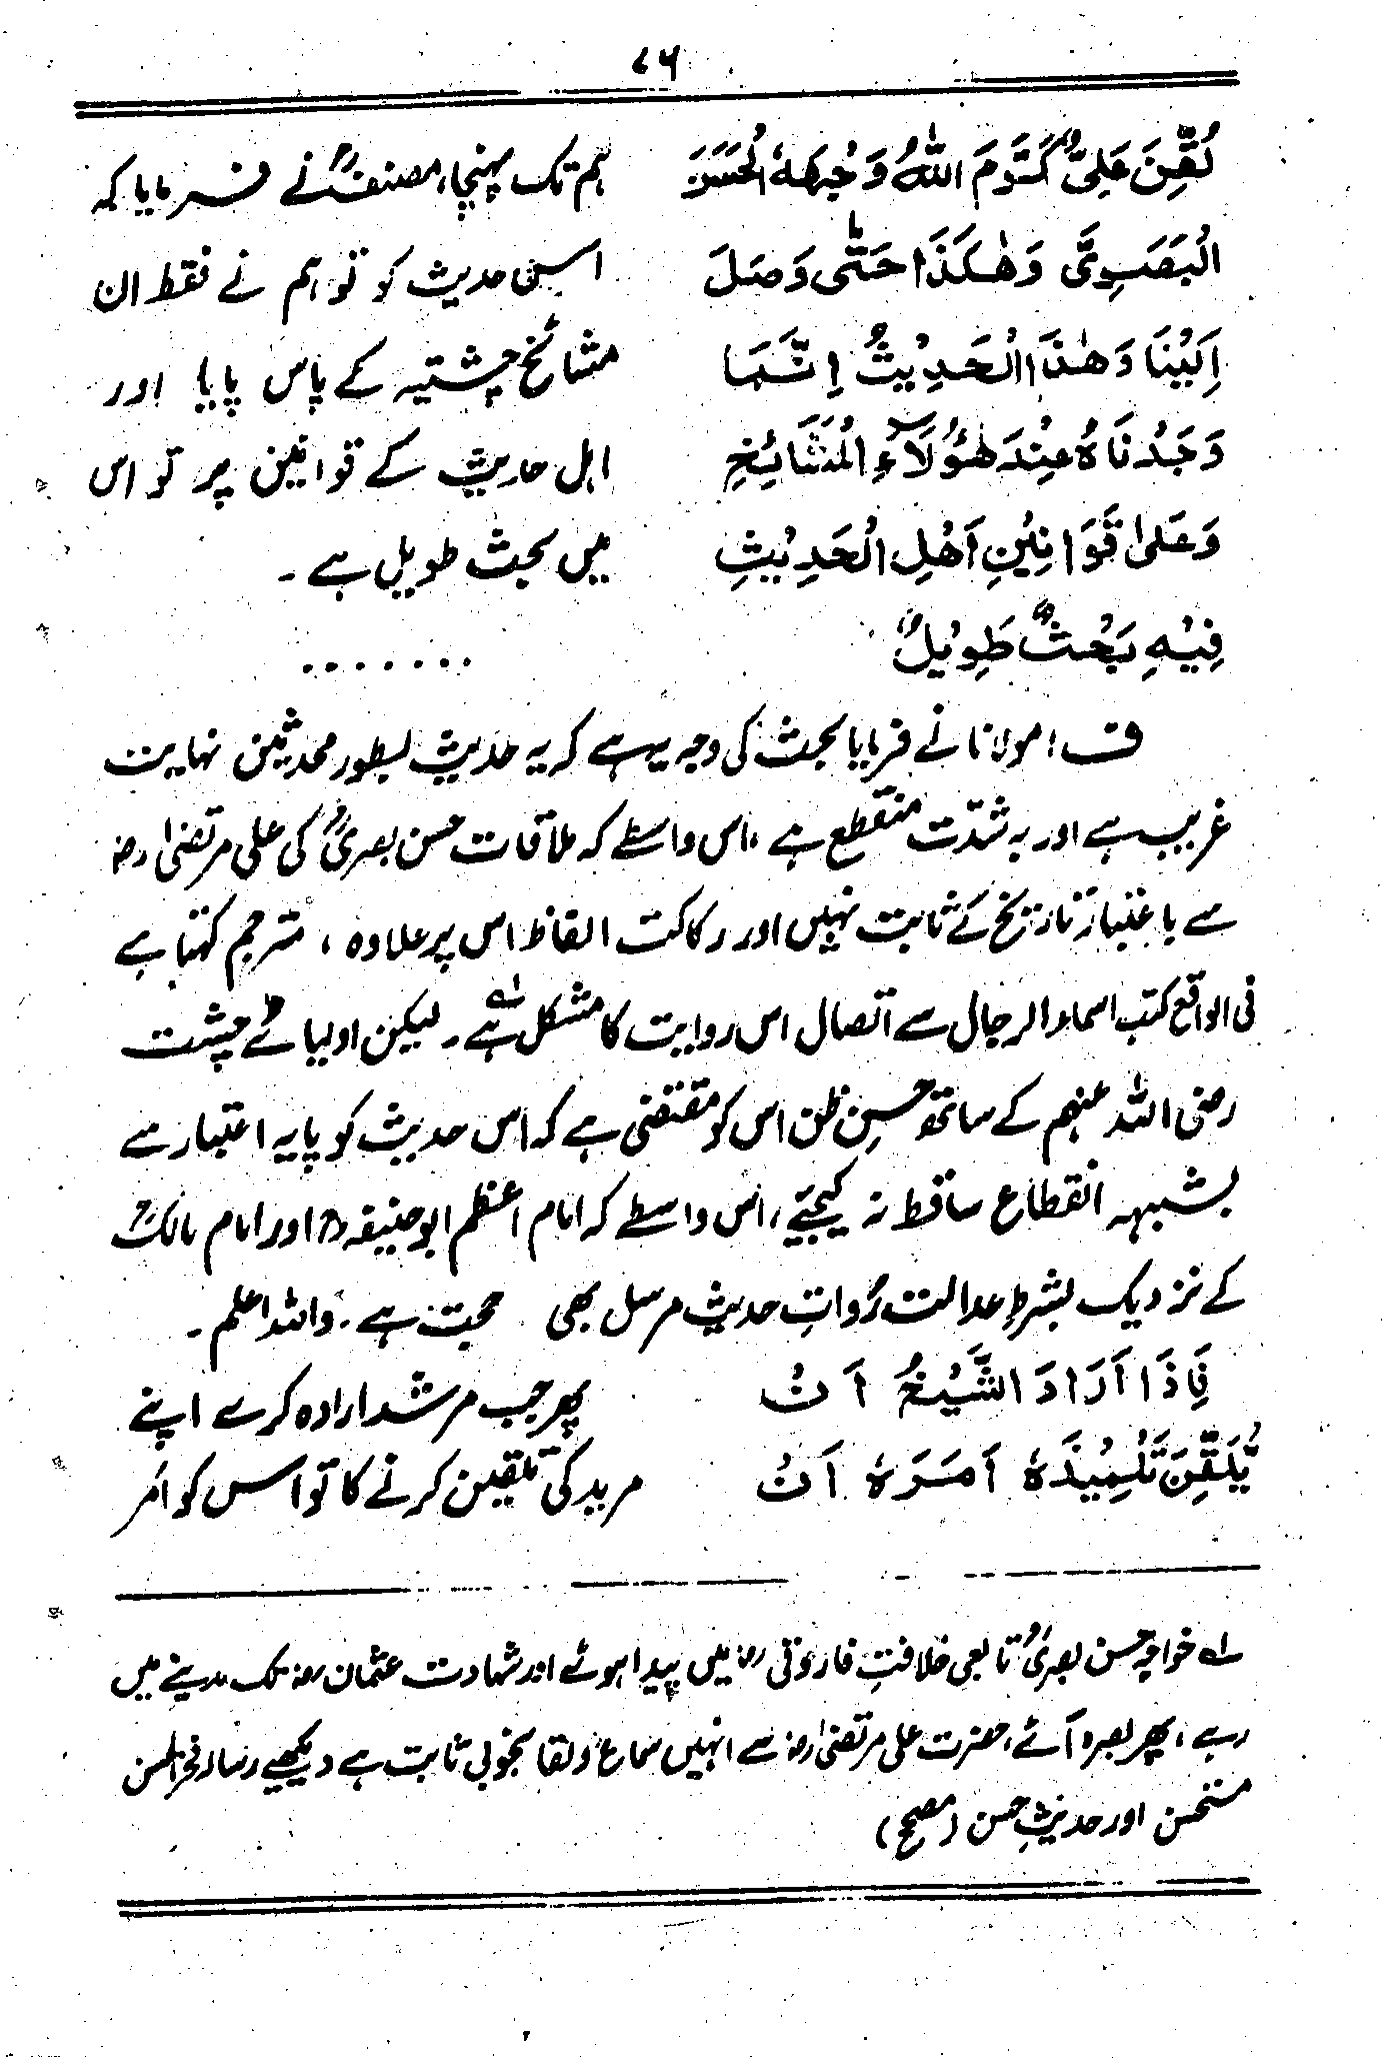 ۷۶
لُقِّنَ عَلِیٌّ کَرَّمَ اللّٰهُ وَجْهَهٗ الْحَسَنَ
الْبَصَرِیَّ وَهٰکَذَا حَتّٰی وَصَلَ
اِلَیْنَا وَهٰذَا الْحَدِیْثُ اِنَّمَا
وَجَدْنَاهُ عِنْدَ هٰؤُلَآءِ الْمَشَائِخِ
وَعَلٰی قَوَانِیْنِ اَهْلِ الْحَدِیْثِ
فِیْهِ بَحْثٌ طَوِیْلٌ
ہم تک پہنچا، مصنفؒ نے فرمایا کہ
اس حدیث کو تو ہم نے فقط ان
مشائخ چشتیہ کے پاس پایا اور
اہل حدیث کے قوانین پر تو اس
میں بحث طویل ہے ۔
۔۔۔۔۔۔۔
ف: مولانا نے فرمایا بحث کی وجہ یہ ہے کہ یہ حدیث بطور محدثین نہایت
غریب ہے اور بہ شدّت منقطع ہے ، اس واسطے کہ ملاقات حسن بصریؒ کی علی مرتضیٰ رضؓ
سے باعتبار تاریخ کے ثابت نہیں اور رکاکت الفاظ اس پر علاوہ ، مترجم کہتا ہے
فی الواقع کتب اسماء الرجال سے اتصال اس روایت کا مشکل ہے ؎۱ ۔ لیکن اولیائے چشت
رضی اللہ عنہم کے ساتھ حسنِ ظن اس کو مقتضی ہے کہ اس حدیث کو پایہ اعتبار سے
بشبہہ انقطاع ساقط نہ کیجئے ، اس واسطے کہ امام اعظم ابوحنیفہؒ اور امام مالکؒ
کے نزدیک بشرطِ عدالت رُواتِ حدیث مرسل بھی حجت ہے ۔ واللہ اعلم ۔
فَاِذَا اَرَادَ الشَّیْخُ اَنْ
یُّلَقِّنَ تَلْمِیْذَهٗ اَمَرَهٗ اَنْ
پھر جب مرشد ارادہ کرے اپنے
مرید کی تلقین کرنے کا تو اس کو امر
؎۱ خواجہ حسن بصریؒ تابعی خلافتِ فاروقی رضؓ میں پیدا ہوئے اور شہادت عثمان رضؓ تک مدینے میں
رہے ، پھر بصرہ آئے ، حضرت علی مرتضیٰ رضؓ سے انہیں سماع و لقا بخوبی ثابت ہے دیکھیے رسالہ فخر الحسن
مستحسن اور حدیثِ حسن (مصحح)